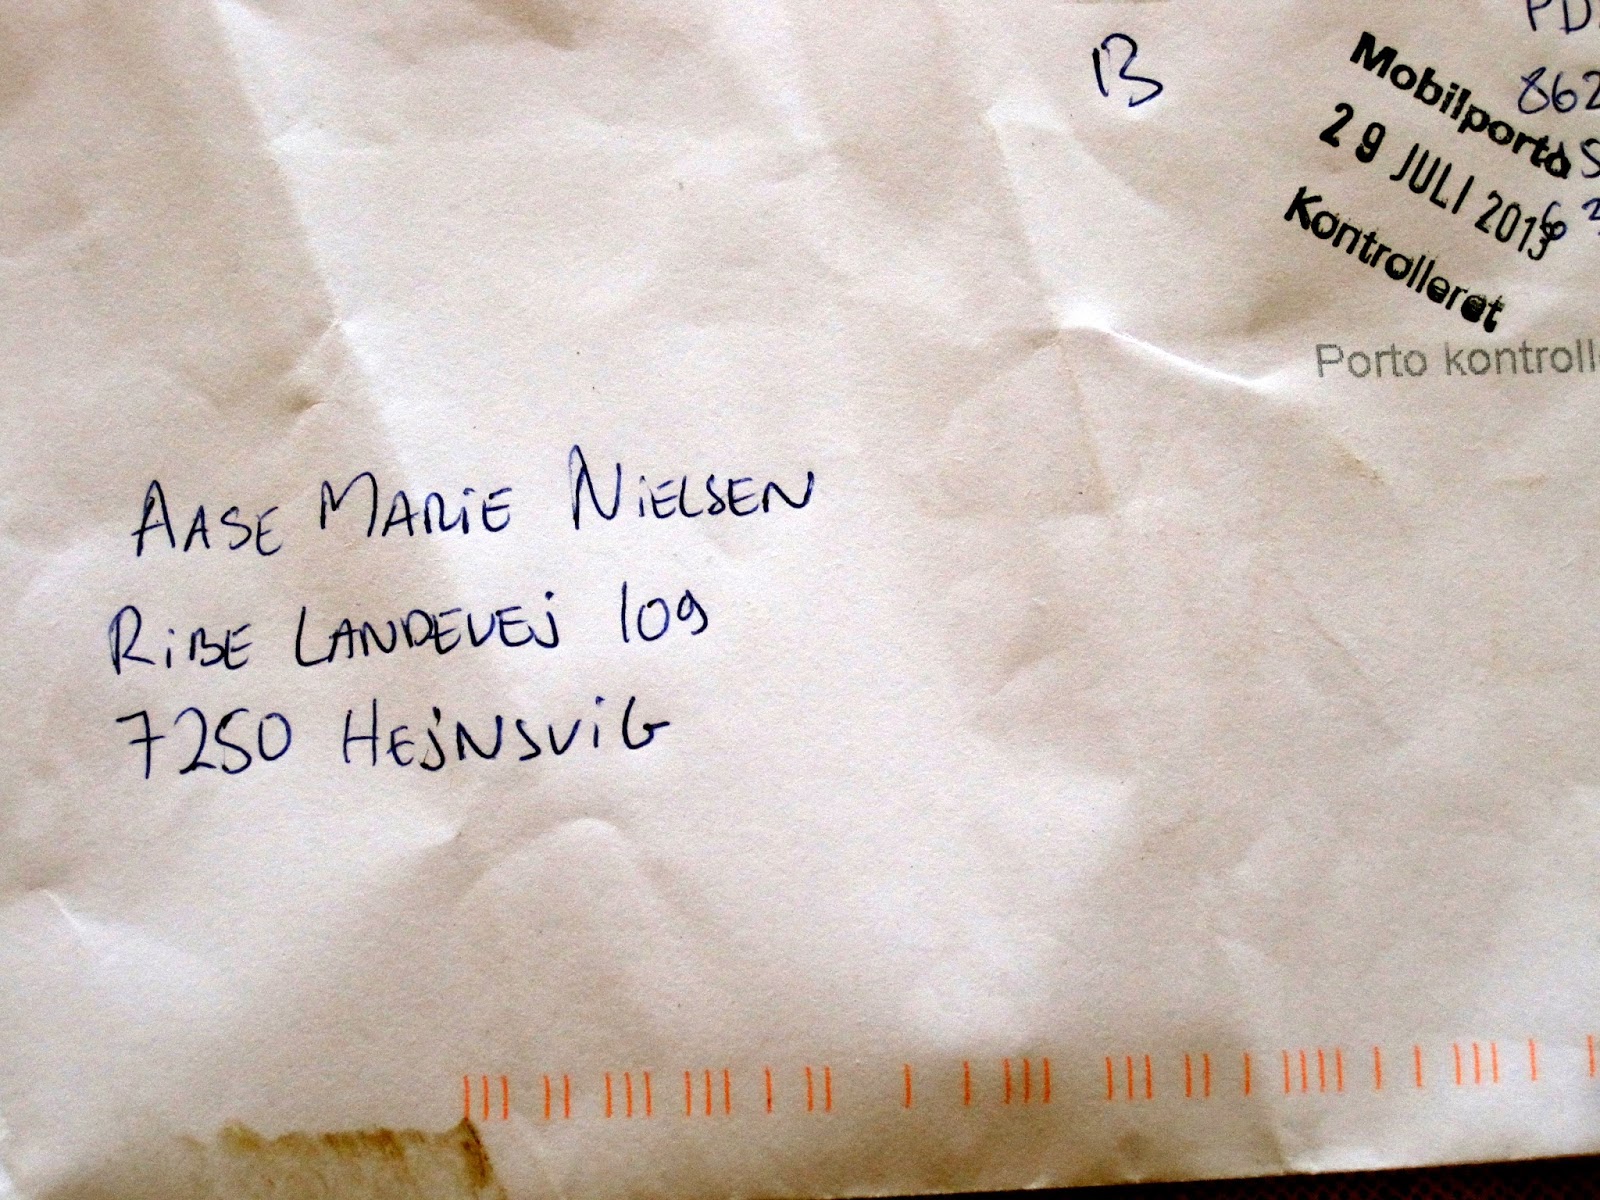 B
Mobilporto
29 JULI 2013
Kontrolleret
Porto kontroll
AASE MARIE NIELSEN
RIBE LANDEVEJ 109
7250 HEJNSVIG